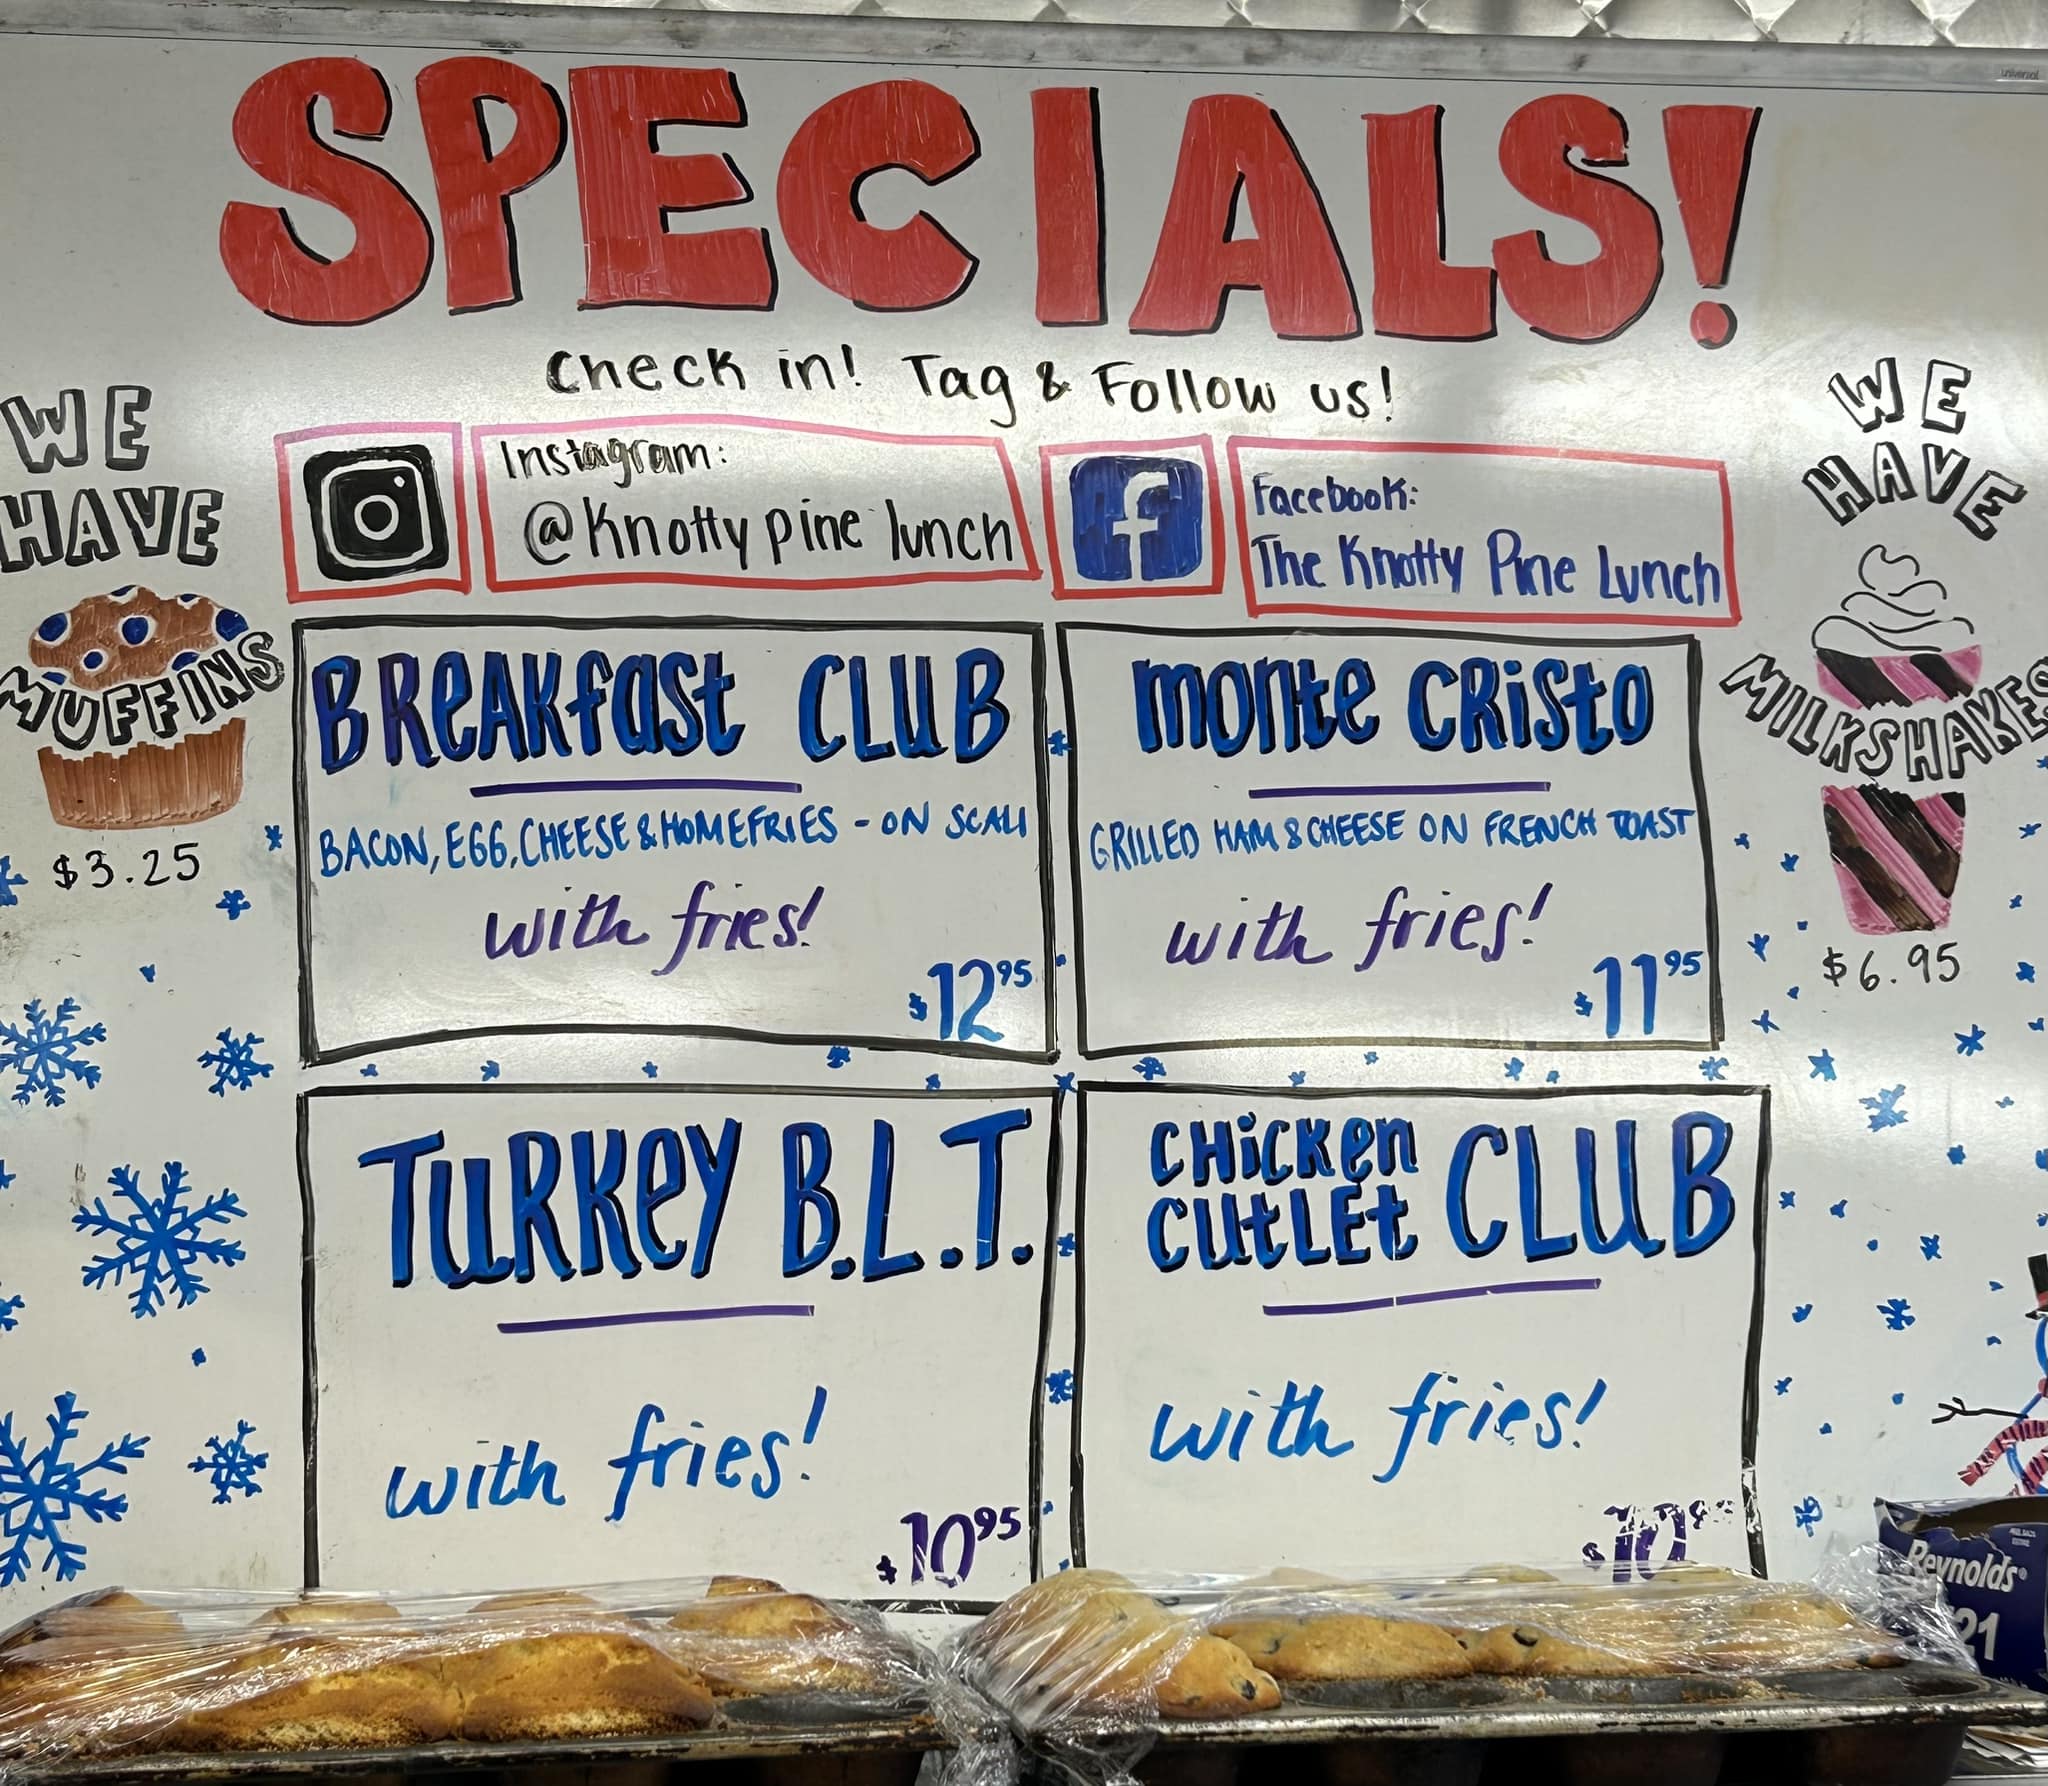 SPECIALS!
Check in! Tag & Follow us!
WE
HAVE
MUFFINS
$3.25
Instagram:
@Knotty pine lunch
f
Facebook:
The Knotty Pine Lunch
WE
HAVE
MILKSHAKES
$6.95
BREAKfast CLUB
BACON, EGG, CHEESE & HOMEFRIES - ON SCALI
with fries!
$12 95
monte CRisto
GRILLED HAM & CHEESE ON FRENCH TOAST
with fries!
$11 95
TURKEY B.L.T.
with fries!
$10 95
CHicken
CUtLEt CLUB
with fries!
$10
Reynolds
universal